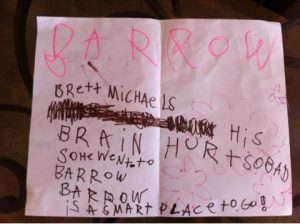 BARROW
BRett MICHAELS
HIS
BRAIN HURtSOBAD
SOHEWENtOtO
BARROW
BARROW
iSASMARtPLACEtOGO!!